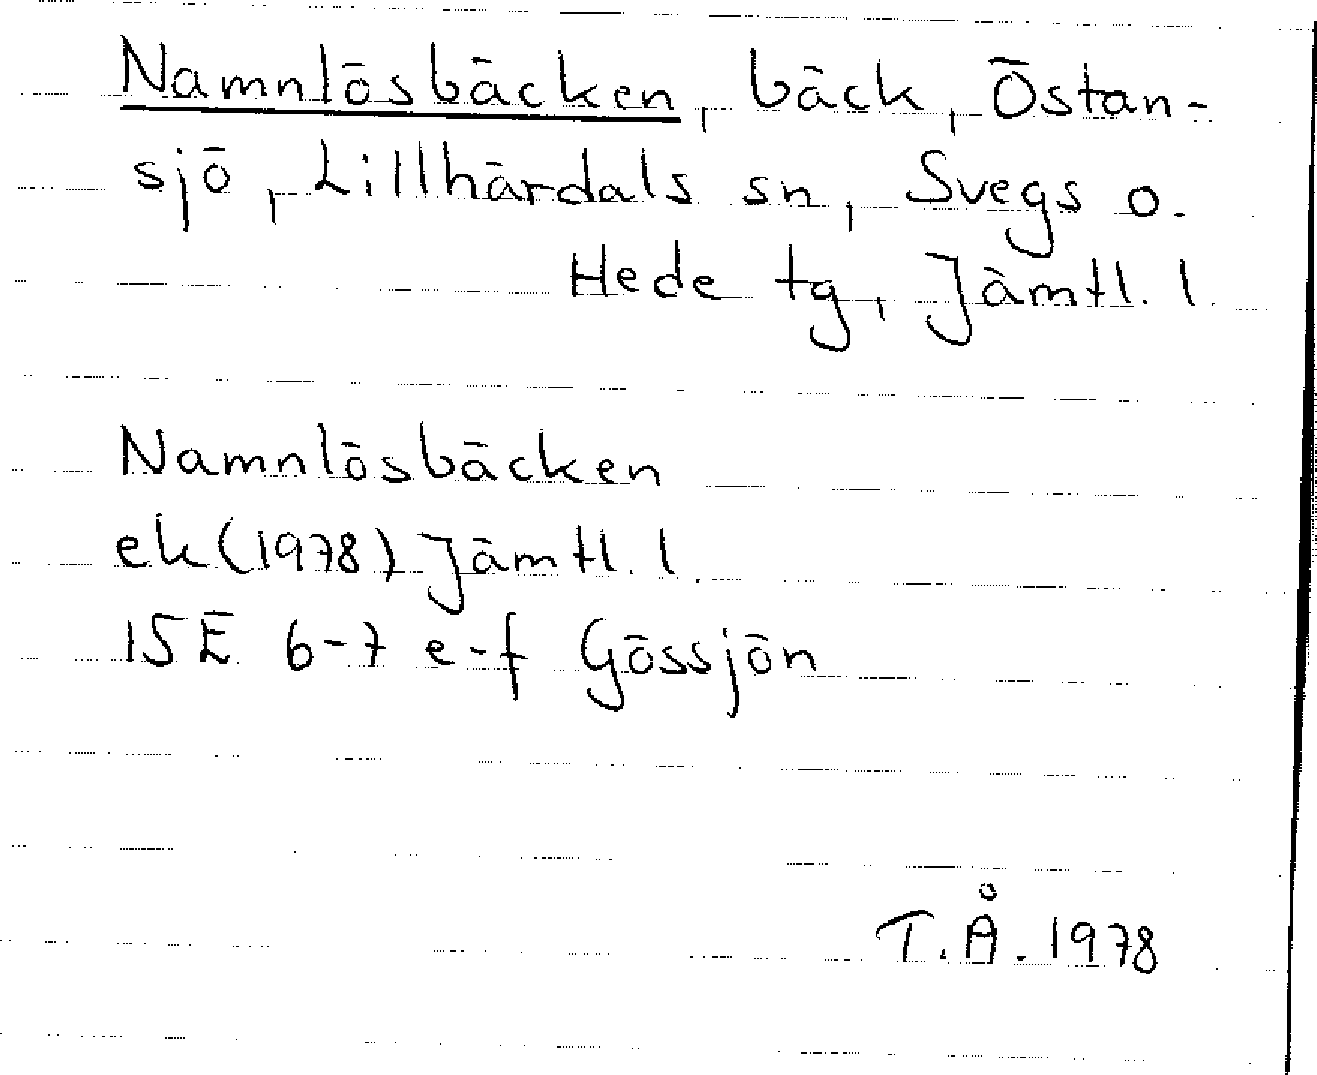 Namnlösbäcken, bäck, Östan-
sjö, Lillhärdals sn, Svegs o.
Hede tg, Jämtl. l.
Namnlösbäcken
ek (1978) Jämtl. l.
15E 6-7 e-f Gössjön
T.Å. 1978